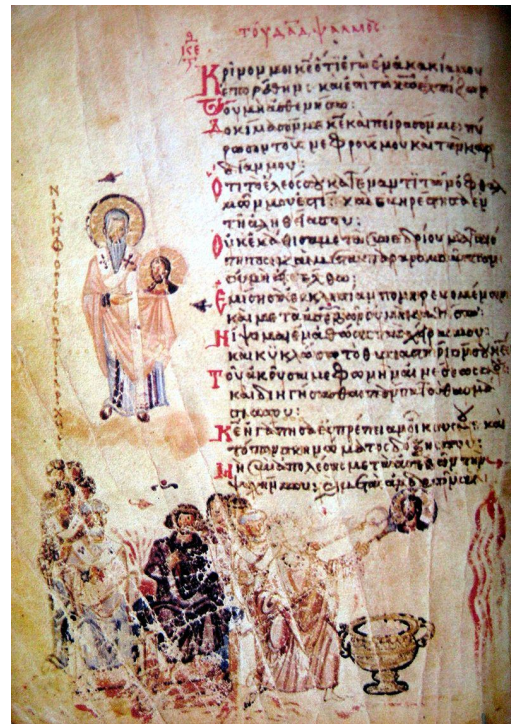 τοῦ δα̅δ ψαλμός
Κρῖνόν μοι κ̅ε̅ ὅτι ἐγὼ ἐν ἀκακίᾳ μου
ἐπορεύθην· καὶ ἐπὶ τῷ κ̅ω̅ ἐλπίζων
οὐ μὴ ἀσθενήσω:
Δοκίμασόν με κ̅ε̅ καὶ πείρασόν με· πύ
ρωσον τοὺς νεφρούς μου καὶ τὴν καρ
δίαν μου:
Ὅτι τὸ ἔλεός σου κατέναντι τῶν ὀφθαλ
μῶν μου ἐστί: καὶ εὐηρέστησα ἐν
τῇ ἀληθείᾳ σου:
Οὐκ ἐκάθισα μετὰ συνεδρίου ματαιό
τητος καὶ μετὰ παρανομούντων
οὐ μὴ εἰσέλθω:
Ἐμίσησα ἐκκλησίαν πονηρευομένων
καὶ μετὰ ἀσεβῶν οὐ μὴ καθίσω:
Νίψομαι ἐν ἀθώοις τὰς χεῖράς μου
καὶ κυκλώσω τὸ θυσιαστήριόν σου κ̅ε̅
Τοῦ ἀκοῦσαί με φωνῆς αἰνέσεώς σου
καὶ διηγήσασθαι πάντα τὰ θαυμά
σιά σου:
Κ̅ε̅ ἠγάπησα εὐπρέπειαν οἴκου σου καὶ
τόπον σκηνώματος δόξης σου:
Μὴ συναπολέσῃς μετὰ ἀσεβῶν τὴν
ψυχήν μου:
ΝΙΚΗΦΟΡΟΣ ΠΑΤΡΙΑΡΧΗΣ